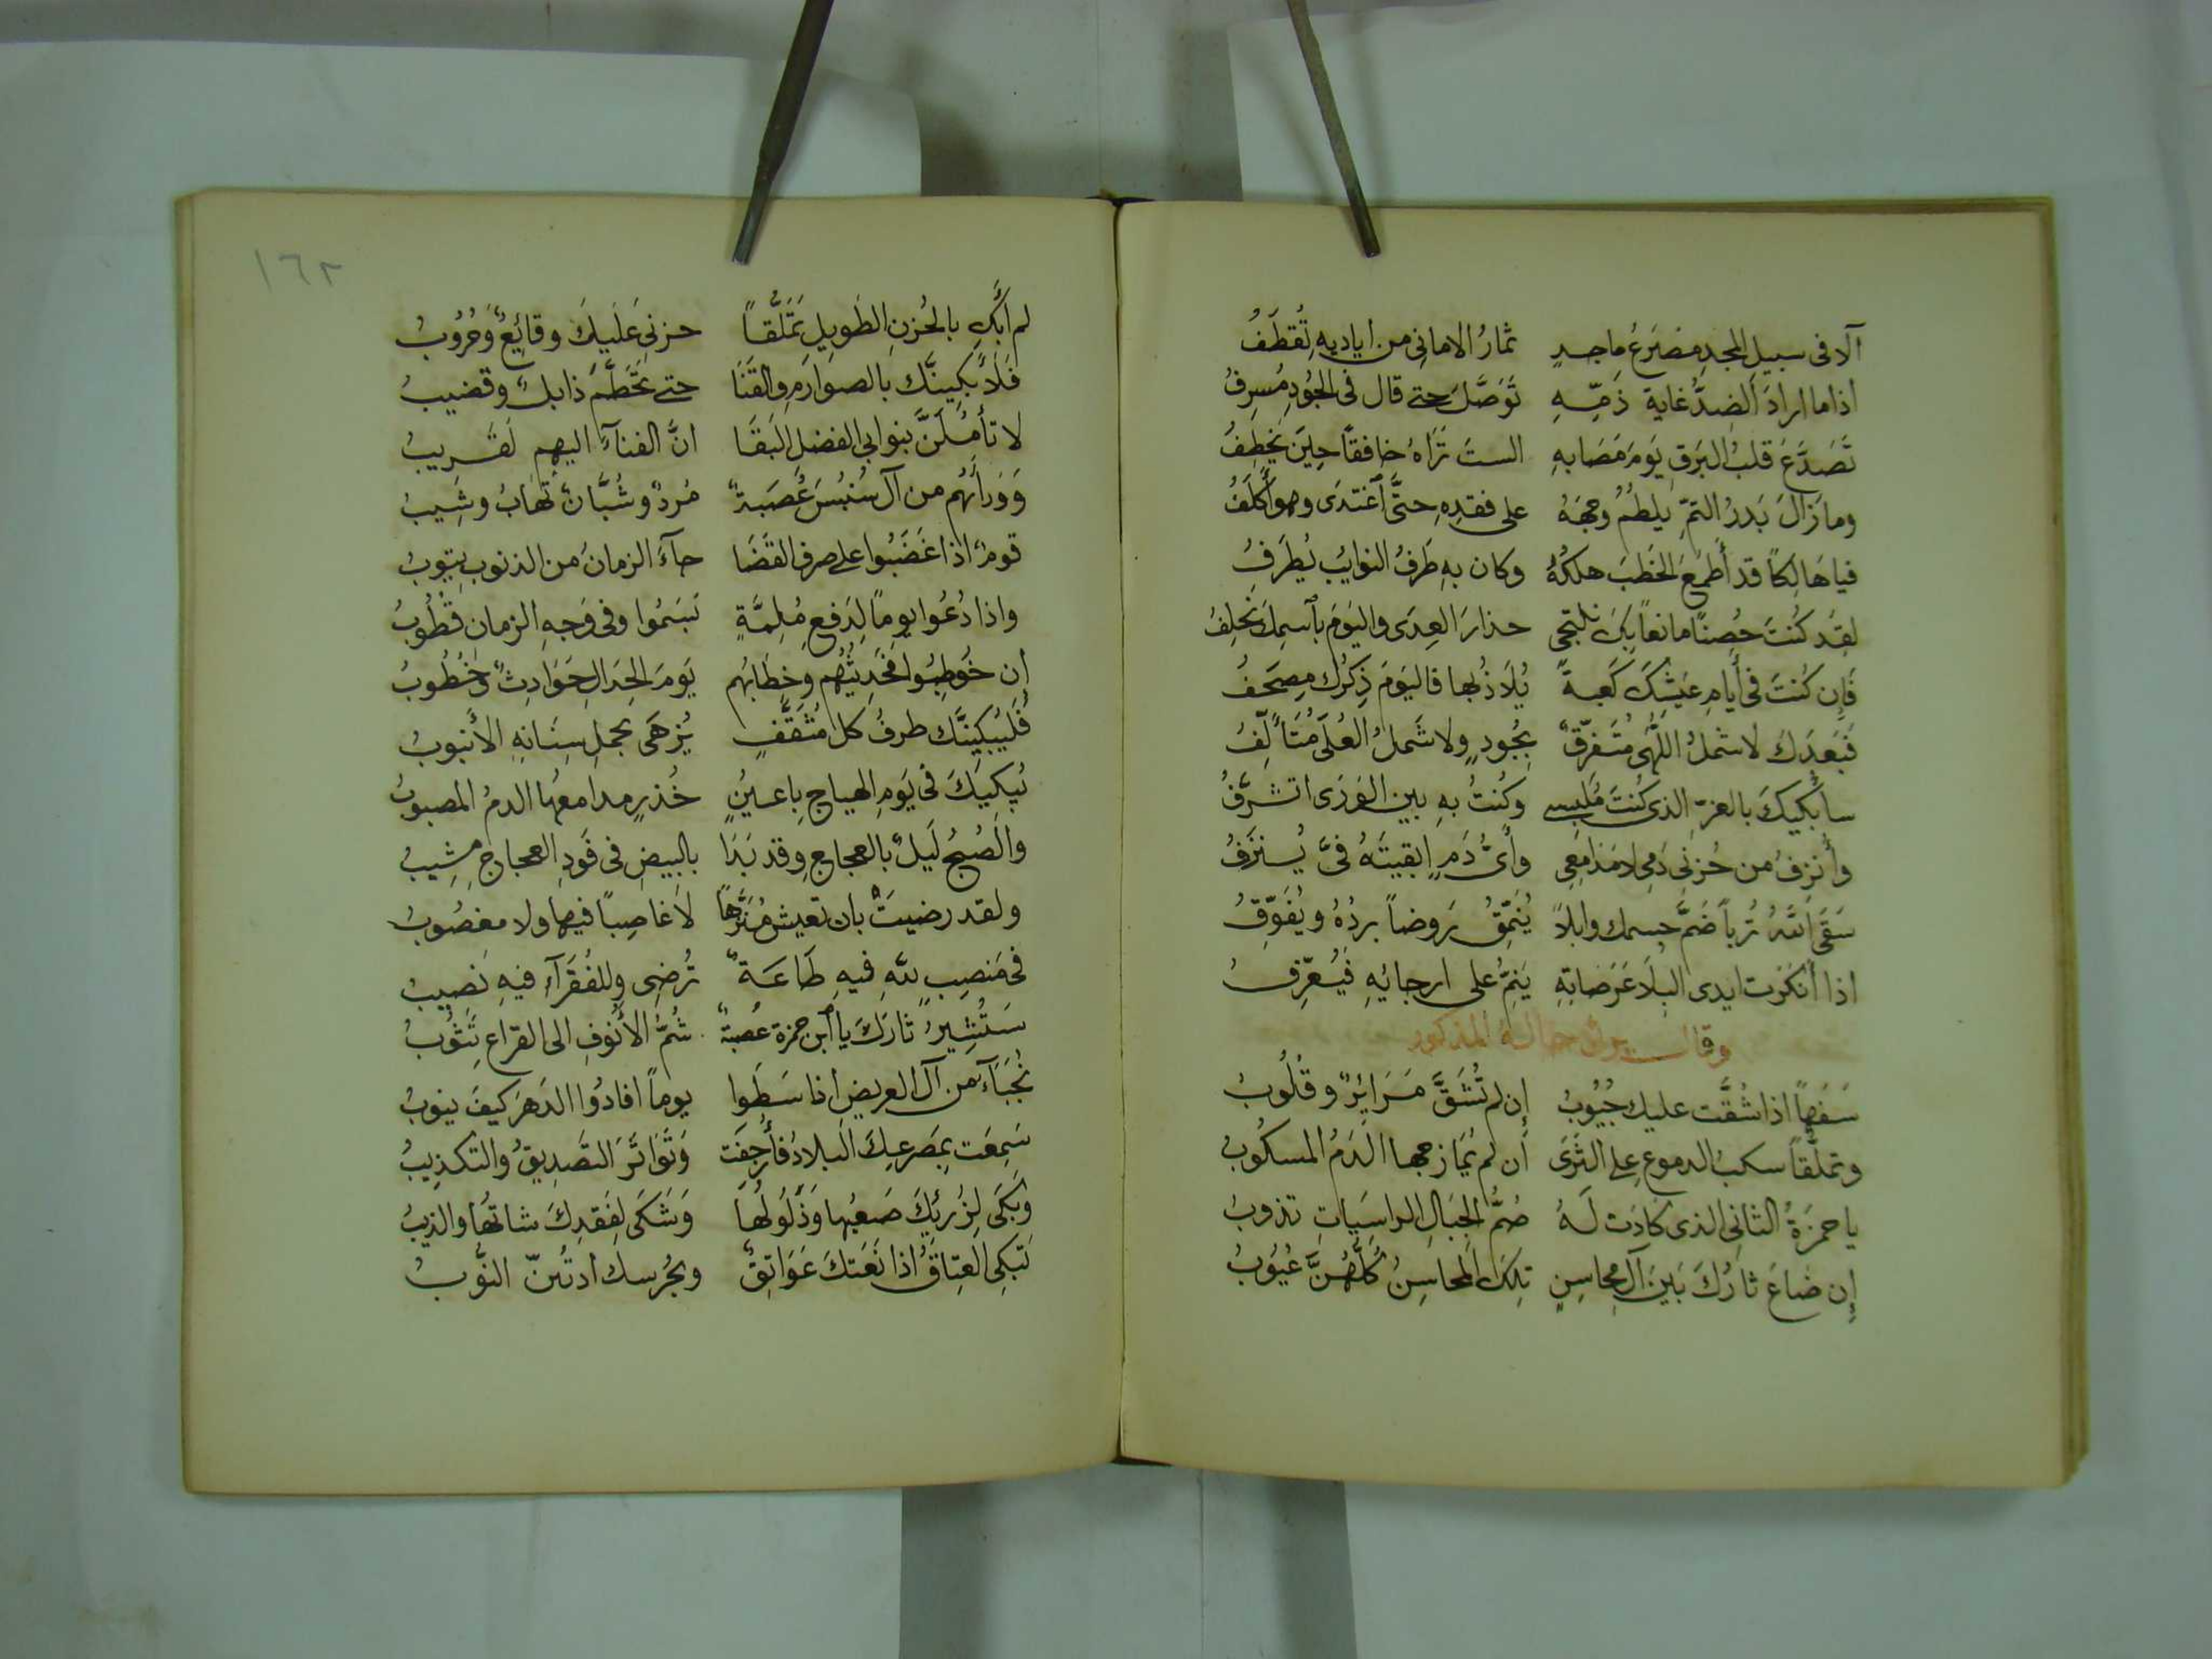 آلا فى سبيل المجدِ مصرَعُ ماجدٍ ثمارُ الامانى من أياديهِ تُقطَفُ
اذا ما اراد الضدُّ غاية ذمّهِ توَصَّلَ حتے قال فى الجُودِ مُسرِفُ
تصَدَّعَ قلبُ البَرقِ يَومَ مَصَابهِ الستَ تَرَاهُ خافقاً حِينَ يَخطِفُ
وما زالَ بَدرُ التمّ يلطُمُ وجهَهُ على فقدِهِ حتَّى اغتدَى وهو أكلَفُ
فيا هَالِكاً قد أطمعَ الخَطبَ هلكُهُ وكان بهِ طَرفُ النوايب يُطرَفُ
لقد كُنتَ حُصناً مانعاً بكَ نلتجى حذارَ العِدَى واليَومَ بآسمِكَ نَحلِفُ
فَإِن كُنتَ فى أيامِ عَيشِكَ كَعبةً يُلاَذُ بها فاليَومَ ذِكرُك مصحَفُ
فبَعدَكَ لا شملُ اللُّهَى مُتفرّقٌ بِجُودٍ ولا شَملُ العُلَى مُتَألّفُ
سأبكيكَ بالعزّ الذى كُنتَ مُلبسے وكُنتُ بهِ بين الوَرَى اتشرَّفُ
وأنزفُ من حُزنى دَمِى لا مَدَامِعِى وأىُّ دَمٍ ابقيتَهُ فىَّ يُنزَفُ
سَقَى اللهُ تُرباً ضَمَّ جسمك وابلاً يُنَمّقُ رَوضاً بردُهُ ويُفَوّفُ
اذا أنكَرت ايدى البِلَا عَرَصاتِهِ يَنِمُّ على ارجائِهِ فيُعَرّفُ
وقال يرثى خاله المذكور
سَفَهاً اذا شُقَّت عليك جُيُوبُ إن لم تُشَقَّ مَرَايِرٌ وقُلُوبُ
وتملُّقاً سكبُ الدموع على الثَرَى أن لم يُمَازجها الدَمُ المسكُوبُ
يا حمزَةُ الثانى الذى كادَت لَهُ صُمُّ الجِبَالِ الراسِيَاتِ تذوبُ
إن ضاعَ ثارُكَ بَينَ آلِ محاسِنٍ تِلكَ المحاسِنُ كُلُّهُنَّ عُيُوبُ
١٦٢
لم أبكِ بالحُزنِ الطَويلِ تَمَلُّقاً حزنى عَلَيكَ وقايعٌ وَحُرُوبُ
فَلَأبكِينَّك بالصوارمِ والقَنَا حتے تَحَطَّمَ ذابلٌ وقضيبُ
لا تأمُلَنَّ بنو ابى الفضلِ البَقَا انَّ الفنآءَ اليهِم لَقَريبُ
وَوَرآئَهُم من آل سُنبُسَ عُصبَةٌ مُردٌ وشُبَّانٌ تُهابُ وشِيبُ
قومٌ اذا غَضَبُوا على صرفِ القَضَا جآءَ الزمانُ من الذنوب يتوبُ
واذا دُعُوا يوماً لِدَفعِ مُلِمَّةٍ بَسَمُوا وفى وَجهِ الزمان قُطُوبُ
إن خُوطِبُوا فحَدِيثُهُم وخِطَابُهُم يَومَ الجِدَالِ حَوَادِثٌ وَخُطُوبُ
فَليُبكِيَنَّك طرفُ كل مُثَقَّفٍ يُزهَى بحملِ سِنَانِهِ الأُنبوبُ
يُبكيكَ فى يَومِ الهياجِ بِاعيُنٍ خُذرٍ مدامعهُا الدمُ المصبوبُ
والصُبحُ لَيلٌ بالعجاج وقد بَدَا بالبيضِ فى فَودِ العجاجِ مشِيبُ
ولقد رضيتَ بان تعيش مُنَزّهاً لا غاصِباً فيها ولا مغصُوبُ
فى مَنصِبٍ للهِ فيهِ طَاعَةٌ تُرضِى وللفُقَرآءِ فيهِ نَصِيبُ
سَتُثيرُ ثارَكَ يا آبن حمزة عُصبةٌ شُمُّ الأُنُوفِ الى القراع تَثوُبُ
نُجَبَآءُ من آل العريضِ اذا سَطَوا يوماً افادُوا الدَهرَ كيفَ ينوبُ
سَمِعَت بِمَصرعِكَ البلادُ فأُرجِفَت وَتَوَاتَرَ التَصدِيقُ والتكذِيبُ
وَبَكَى لِرُزئِكَ صَعبُها وَذَلُولُهَا وَشَكَى لِفَقدِكَ شاتُها والذِيبُ
تَبكِى العِتَاقُ اذا نَعَتكَ عَوَاتِقٌ النُّوبُ